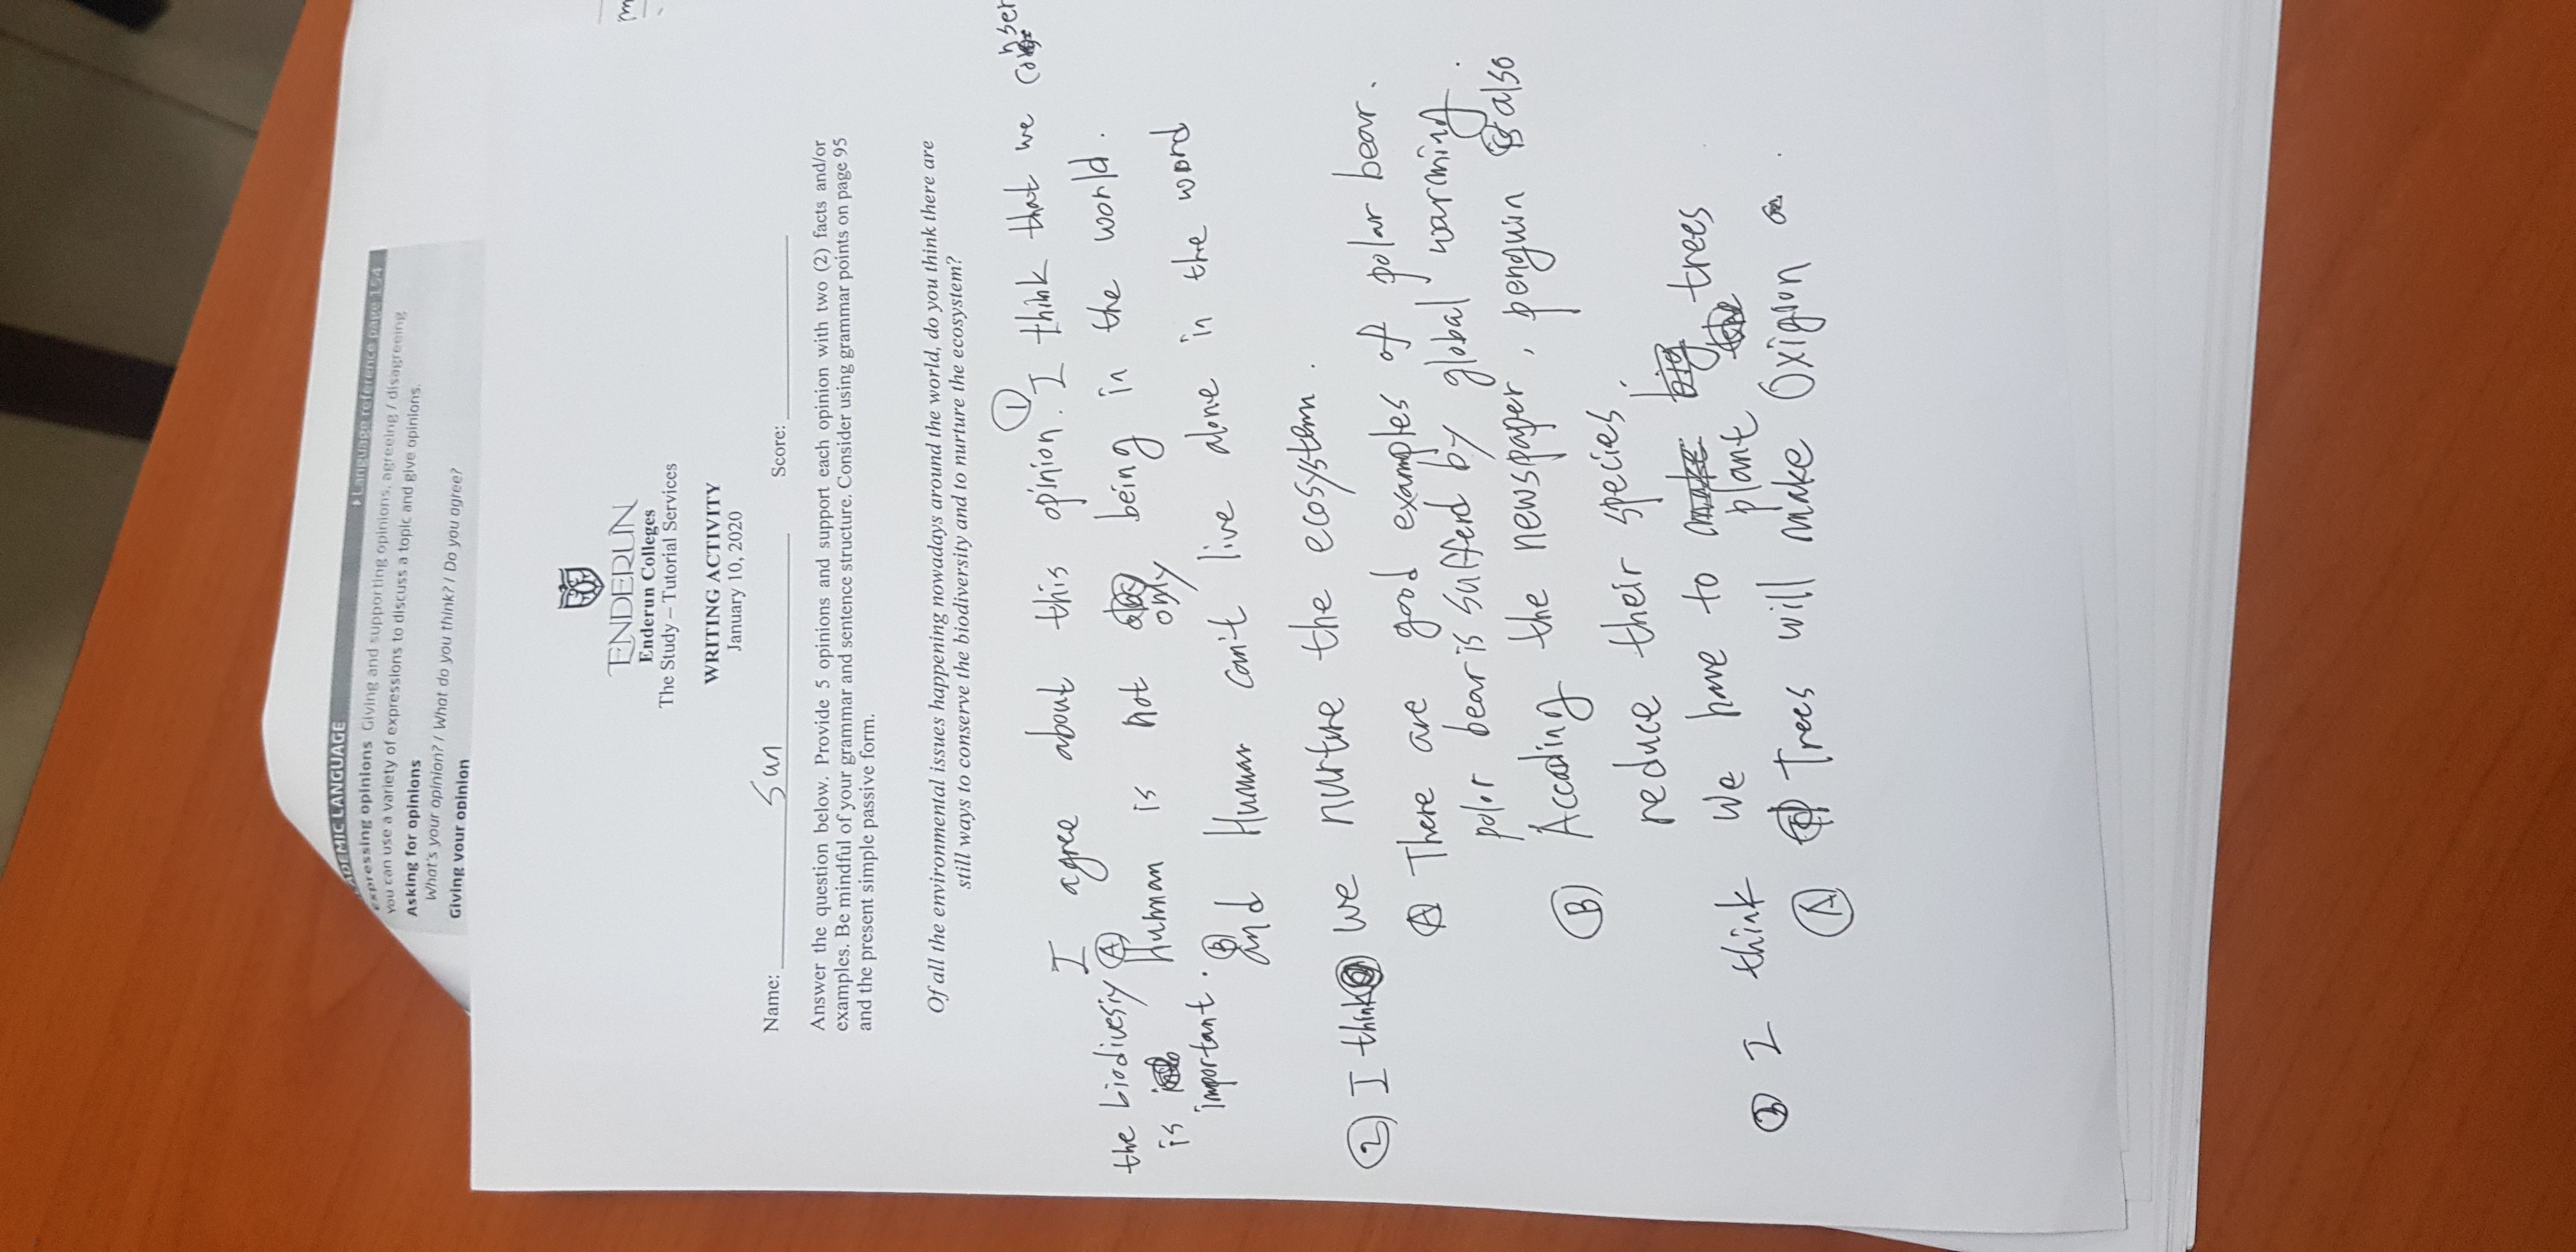 ADEMIC LANGUAGE
▸ Language reference page 154
Expressing opinions Giving and supporting opinions, agreeing / disagreeing
you can use a variety of expressions to discuss a topic and give opinions.
Asking for opinions
What's your opinion? / What do you think? / Do you agree?
Giving your opinion
ENDERUN
Enderun Colleges
The Study – Tutorial Services
WRITING ACTIVITY
January 10, 2020
Name: Sun Score:
Answer the question below. Provide 5 opinions and support each opinion with two (2) facts and/or
examples. Be mindful of your grammar and sentence structure. Consider using grammar points on page 95
and the present simple passive form.
Of all the environmental issues happening nowadays around the world, do you think there are
still ways to conserve the biodiversity and to nurture the ecosystem?
I agree about this opinion. ① I think that we conser
the biodivesiy Ⓐ Human is not only being in the world.
is important. Ⓑ and Human can't live alone in the word
② I think we nurture the ecosystem.
Ⓐ There are good examples of polar bear.
polor bear is sufferd by global warming.
Ⓑ Accoding the newspaper, penguin also
reduce their species.
③ I think we have to plant trees
Ⓐ Trees will make Oxigion.